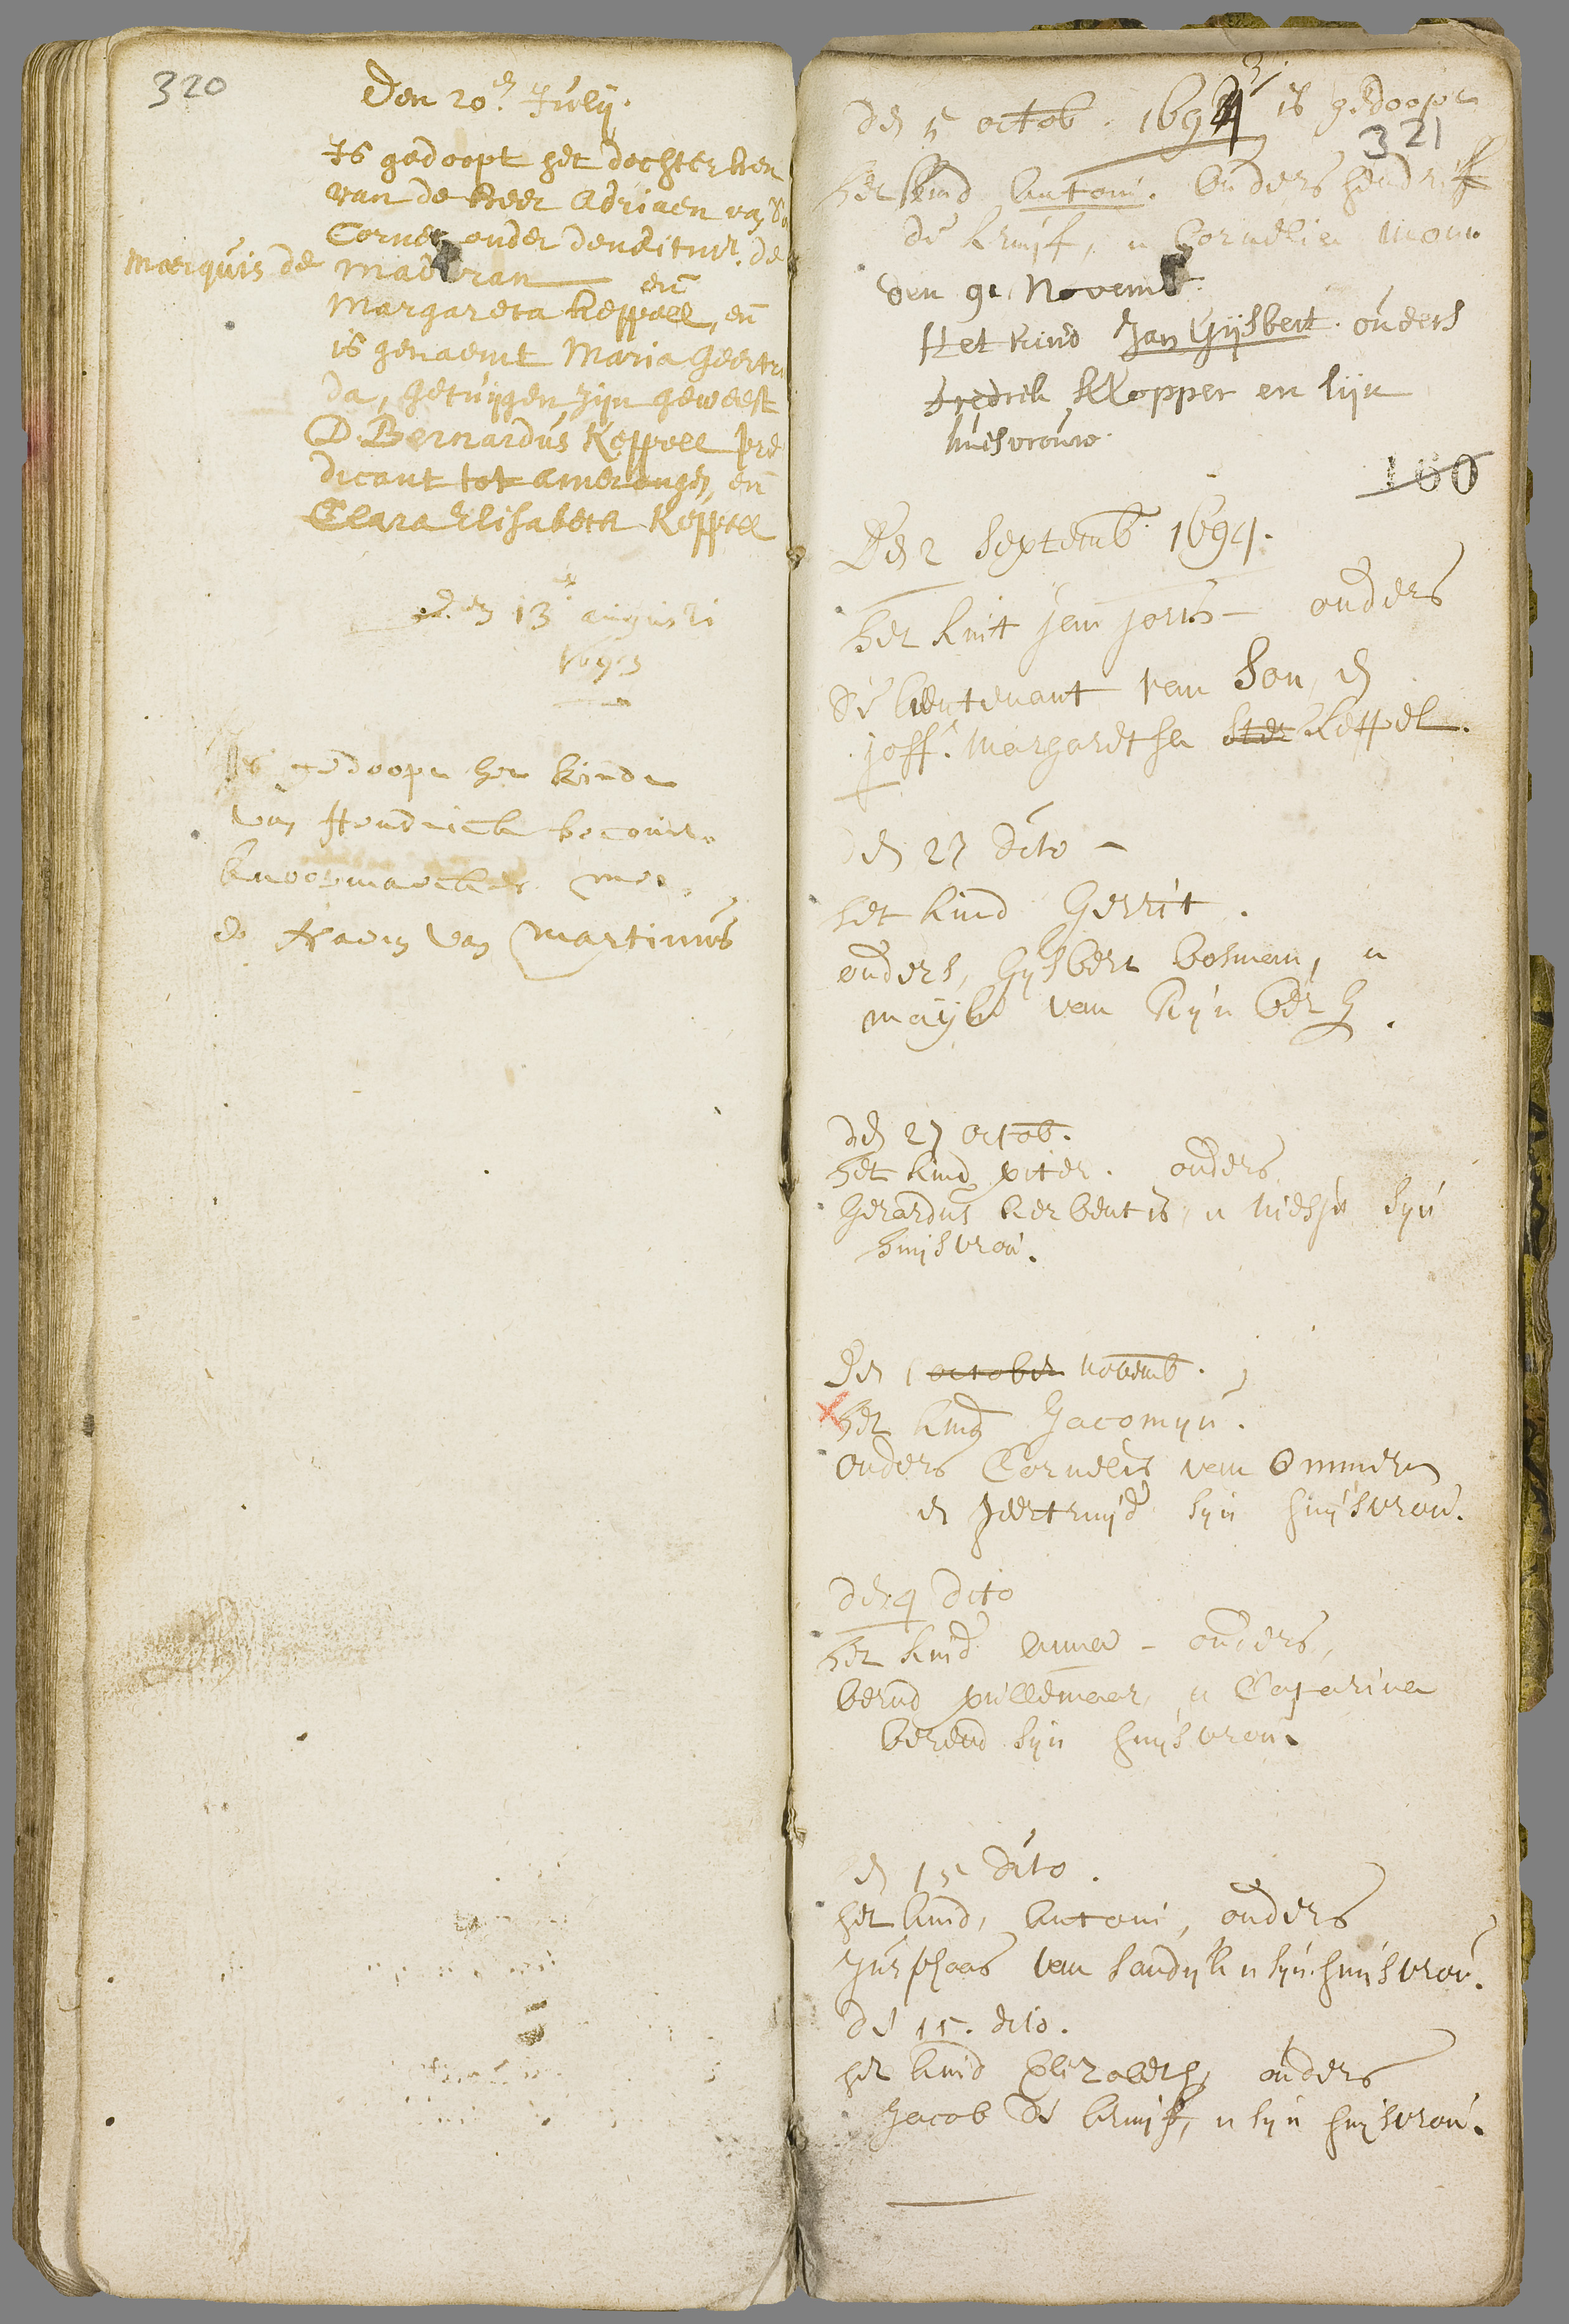 320
Den 20en July.
Is gedoopt het dochterken
van de Heer Adriaen van So
Cornet onder den Ritmr. de
Marquis de Madoran en
Margareta Keppell, en
is genaemt Maria Geertru
da, getuijgen zijn geweest
D. Bernardus Keppell pre
dicant tot Amerongen, en
Clara Elisabeth Keppell
den 13 augusti
1693
Is gedoopt het kindt
van Hendrick
knoopmaecker met
de Naem van Martinus
321
den 5 octob. 1694 is gedoopt
het kind Antoni. Ouders Hendrik
de Kruijf, en Cornelia
den 91 Novemb.
Het kind Jan Gijsbert. ouders
Fredrik Klopper en sijn
huisvrouw.
160
Den 2 Septemb 1694.
het kint Jan Joris – ouders
de lieutenant van Son, en
joffr. Margaretha Ster Keppel.
den 27 dito –
het kind Gerrit.
ouders, Gysbert Bosman, en
maijke van Rijnberg.
den 27 octob.
het kind piter. ouders
Gerardus Kerbent is, en sijn
huijsvrou.
Den 1 october novemb.
het kind Jacomijn.
ouders Cornelis van Ommeren
en geertruijd sijn huijsvrou.
den 4 dito
het kind Anna – ouders,
berend pullemaer, en Catarina
berend sijn huijsvrou.
den 15 dito.
het kind, Antoni, ouders
Jurphaas van Sandijk en sijn huijsvrou.
de 15. dito.
het kind Elizabeth, ouders
Jacob de Kruijf, en sijn huijsvrou.